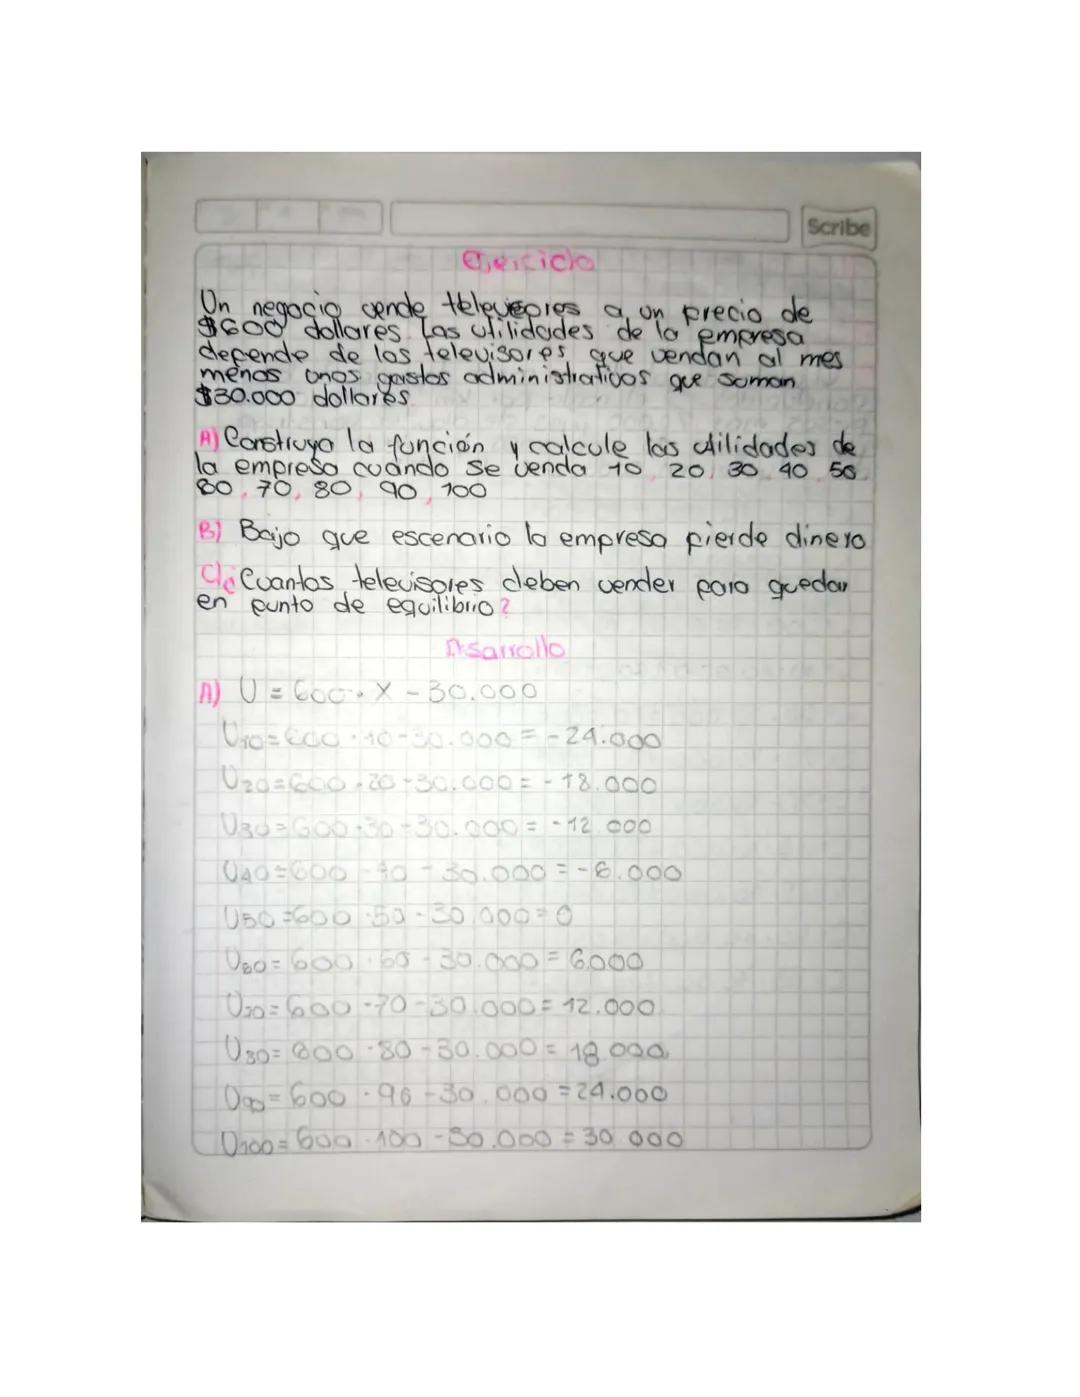 Scribe
Ejercicio
Un negocio vende televisores a un precio de
$600 dollares. Las utilidades de la empresa
depende de los televisores que vendan al mes
menos unos gastos administrativos que suman
$30.000 dollares
A) Construya la función y calcule las utilidades de
la empresa cuando se venda 10, 20, 30, 40, 50
60, 70, 80, 90, 100
B) Bajo que escenario la empresa pierde dinero
C) ¿Cuantos televisores deben vender para quedar
en punto de equilibrio?
Desarrollo
A) U = 600 · X - 30.000
U10 = 600 · 10 - 30.000 = - 24.000
U20 = 600 · 20 - 30.000 = - 18.000
U30 = 600 · 30 - 30.000 = - 12.000
U40 = 600 · 40 - 30.000 = - 6.000
U50 = 600 · 50 - 30.000 = 0
U60 = 600 · 60 - 30.000 = 6.000
U70 = 600 · 70 - 30.000 = 12.000
U80 = 600 · 80 - 30.000 = 18.000
U90 = 600 · 90 - 30.000 = 24.000
U100 = 600 · 100 - 30.000 = 30.000